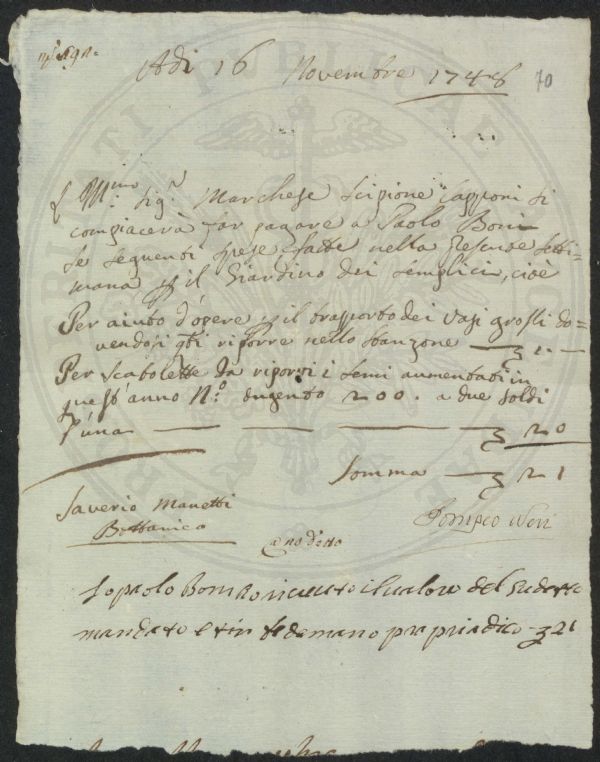 Adi 16 Novembre 1748 70
L'Ill.mo Sig.r Marchese Scipione Capponi si
compiacerà far pagare a Paolo Boni
le seguenti spese fatte nella presente setti-
mana p il Giardino dei Semplici, cioè
Per aiuto d'opere p il trasporto dei Vasi grossi do-
vendosi qti riporre nello stanzone — 1. —
Per scatolette da riporvi i semi aumentati in
quest'anno N.o dugento 200. a due soldi
l'una — — — — 20
Somma — 21
Saverio Manetti
Bottanico
Pompeo Neri
Anno detto
Io paolo Boni o riceuto il valore del sudetto
mandato e in fede mano propria dico 21